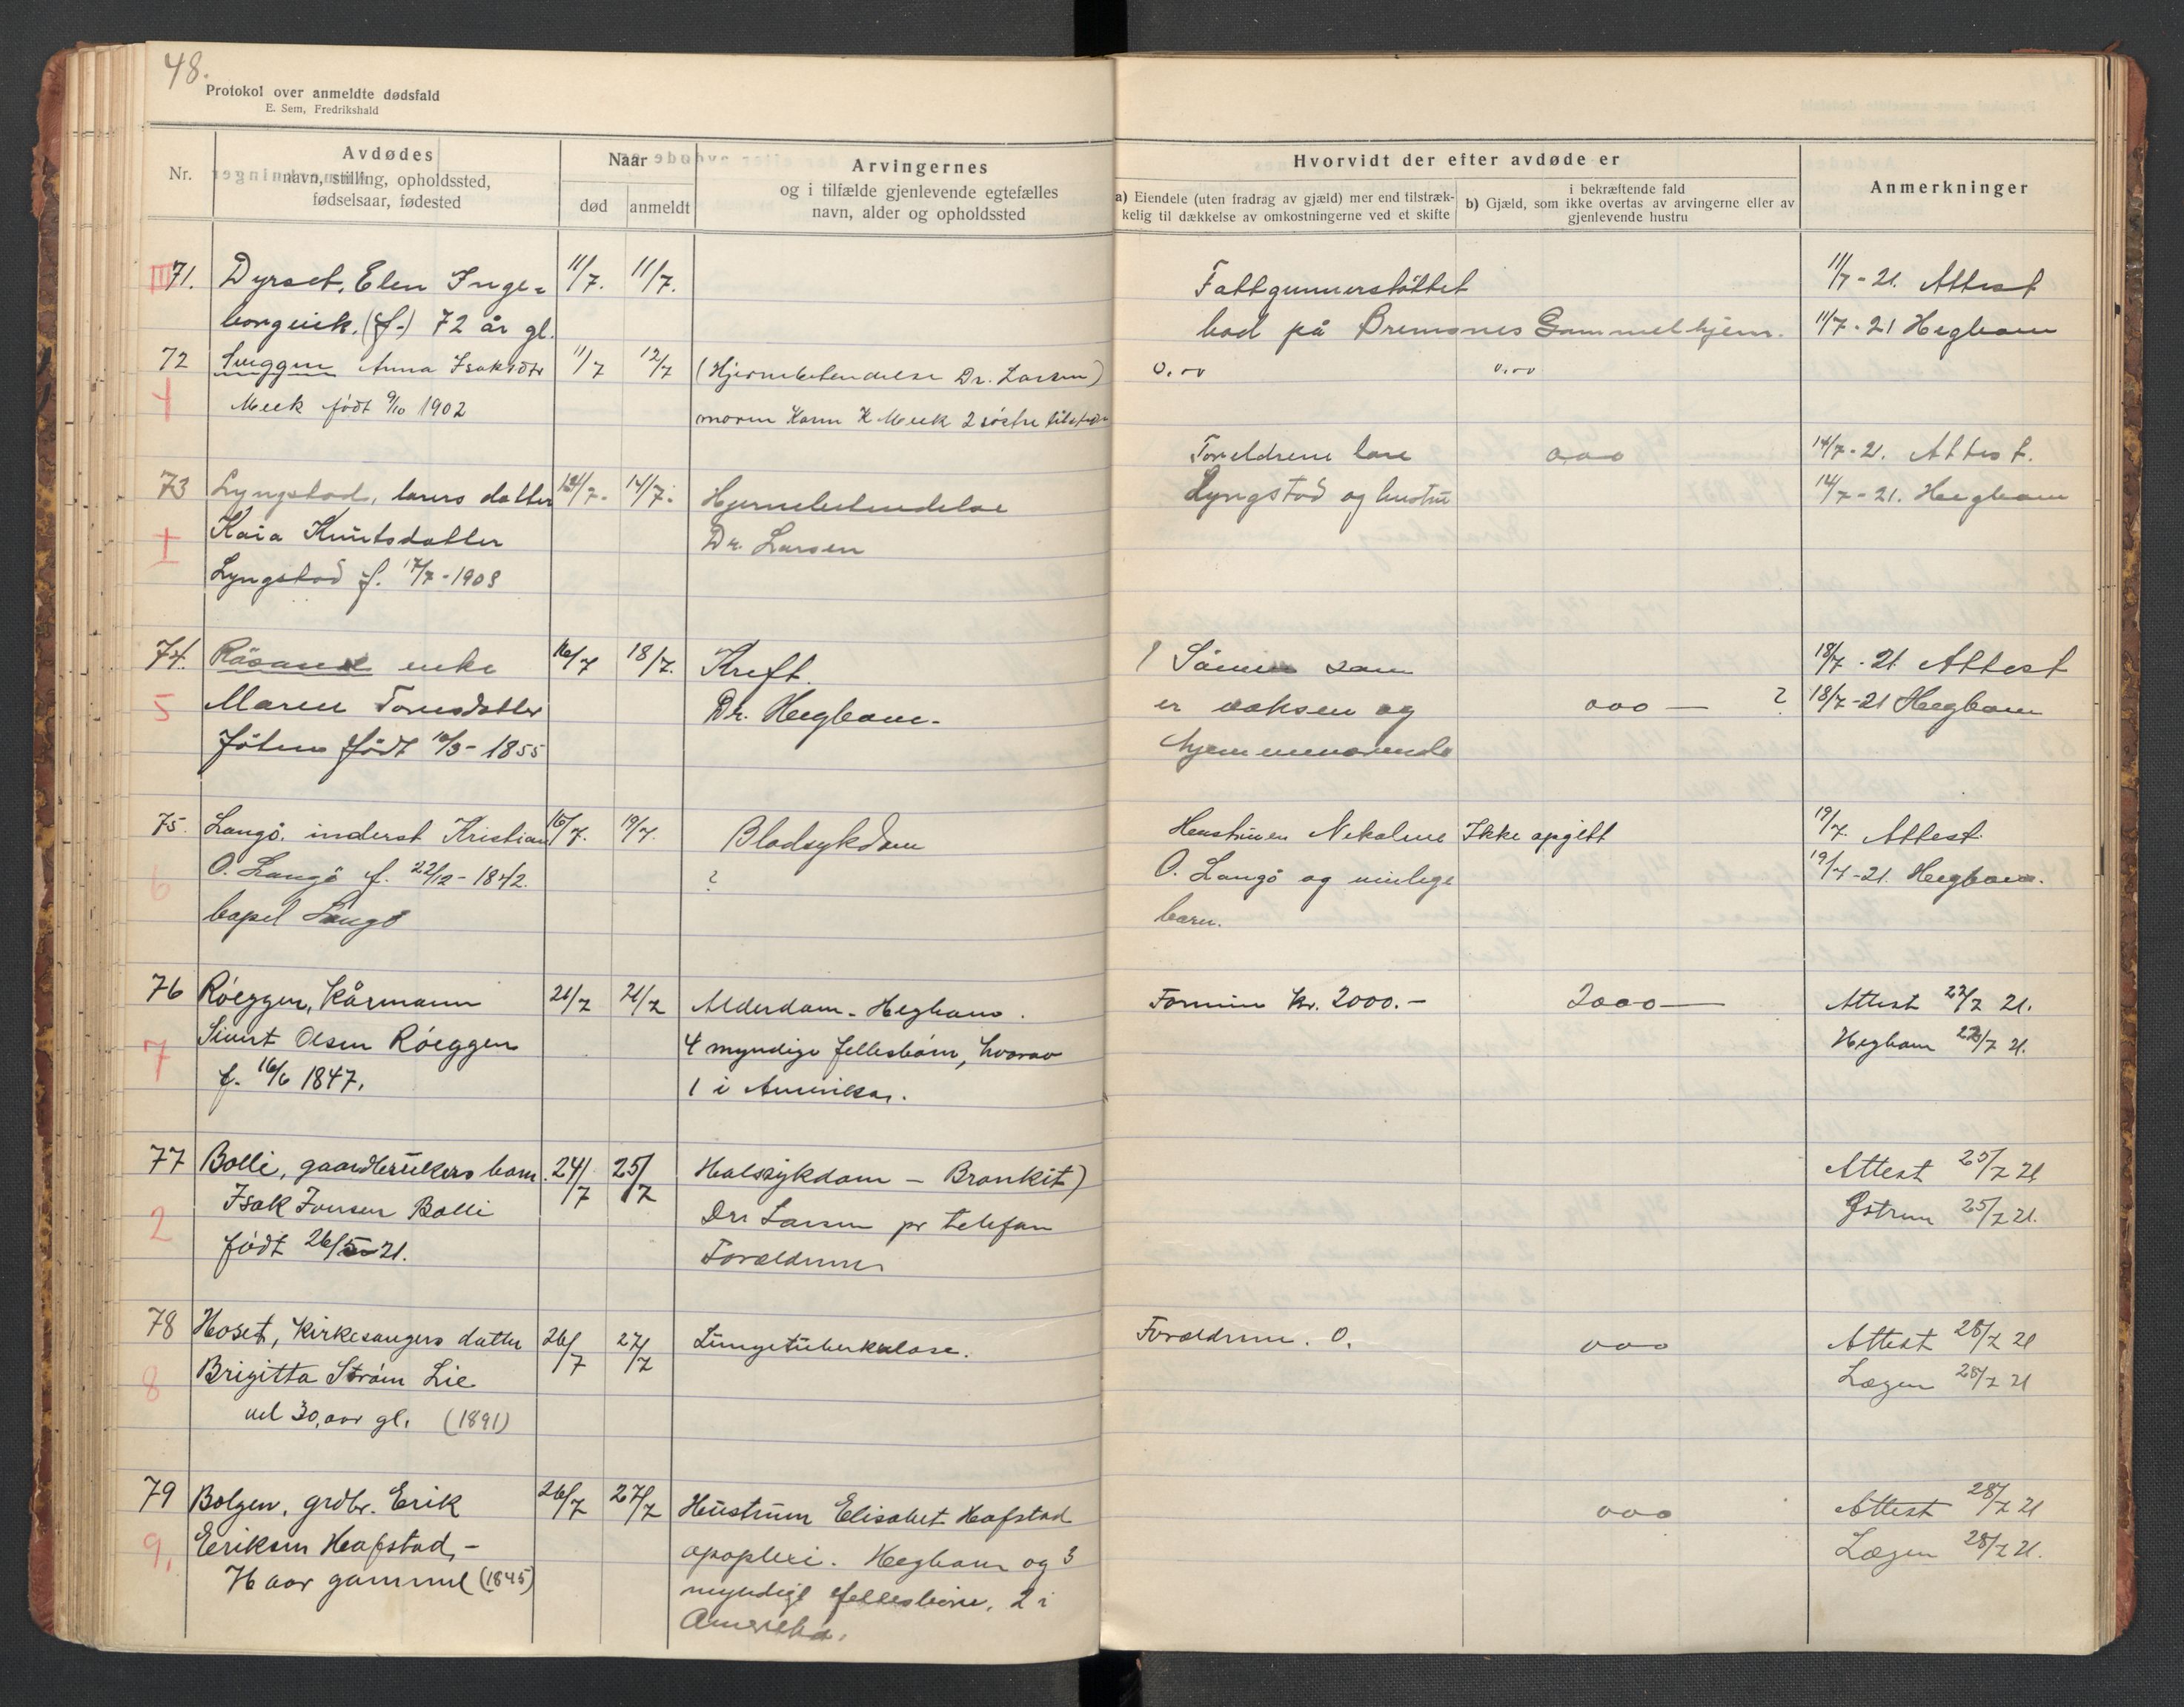 48.
Protokol over anmeldte dødsfald
E. Sem, Fredrikshald
Nr.
Avdødes
navn, stilling, opholdssted,
fødselsaar, fødested
Naar
død
anmeldt
Arvingernes
og i tilfælde gjenlevende egtefælles
navn, alder og opholdssted
Hvorvidt der efter avdøde er
a) Eiendele (uten fradrag av gjæld) mer end tilstræk-
kelig til dækkelse av omkostningerne ved et skifte
i bekræftende fald
b) Gjæld, som ikke overtas av arvingerne eller av
gjenlevende hustru
Anmerkninger
III 71. Dyrset, Elen Inge= 11/7. 11/7. Fattigunnerstöttet 11/7-21. Attest
borg enk. (f.) 72 år gl. bod på Bremsnes Gammelhjem. 11/7-21 Hegbom
72 Sveggen Anna Isaksdtr 11/7 12/7 (Hjernebetendelse Dr. Larsen)
Meek født 9/10 1902 moren Karen K Meek 2 söstre
Foreldrene lære ooo 14/7-21. Attest.
73 Lyngstad, lærers datter 14/7. Hjernebetendelse Lyngstad og hustru 14/7-21. Hegbom
Kaia Knutsdatter Dr. Larsen
Lyngstad f. 17/7-1908
74. Råsand enke 16/7 18/7. Kreft. 1 Sönn som 18/7-21 Attest
5 Maren Tomsdatter Dr. Hegbom. er voksen og ooo — ? 18/7-21 Hegbom
født 10/3-1855 hjemmeværende
75. Langö. inderst Kristian 16/7. 19/7. Blodsykdom Hustruen Nekoline Ikke opgitt 19/7. Attest.
6 O. Langö f. 22/12-1842. ? O. Langö og myndige 19/7-21. Hegbom.
bopel Langö barn.
76 Röeggen, Kårmann 21/7 21/7 Alderdom - Hegbom. Formue kr. 2000.- 2000 — Attest 22/7 21.
7 Sivert Olsen Röeggen 4 myndige fellesbörn, hvorav Hegbom 22/7 21.
f. 16/6 1847. 1 i Amerika.
77 Bolli, gaardbrukers barn. 24/7 25/7 Halssykdom - Bronkit) Attest 25/7 21
2 Isak Iversen Bolli Dr. Larsen pr telefon Østrem 25/7 21.
født 26/5-21. Forældrene
78 Hoset, Kirkesangers datter 26/7 27/7 Lungetuberkulose. Forældrene. 0. ooo Attest 28/7 21
8 Brigitta Ström Lie Lægen 28/7 21
vel 30 aar gl. (1891)
79 Bolgen, grdbr. Erik 26/7 27/7 Hustruen Elisabet Hafstad ooo Attest 28/7 21
9. Eriksen Hafstad,- apoplexi. Hegbom og 3 Lægen 28/7 21.
76 aar gammel (1845) myndige fellesbörn, 2 i
Amerika.